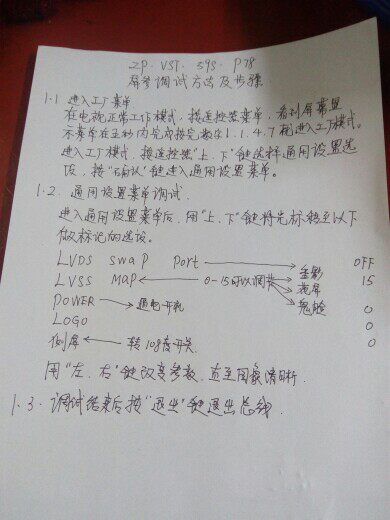 ZP. VST. 59S. P78
屏参调试方法及步骤
1.1 进入工厂菜单
在电视正常工作模式，按遥控菜单，看到屏幕显
示菜单在五秒内完成按完数字1.1.4.7既进入工厂模式。
进入工厂模式，按遥控"上、下"键选择通用设置选
项，按"确认"键进入通用设置菜单。
1.2. 通用设置菜单调试.
进入通用设置菜单后，用"上、下"键将光标移至以下
做标记的选项。
LVDS swap port 重影 OFF
LVSS MAP 0-15可以调节 花屏 15
POWER 通电开机 鬼脸 0
LOGO 0
倒屏 转108度开关. 0
用"左、右"键改变参数，直至图象清晰.
1.3. 调试结束后按"退出"键退出总线.